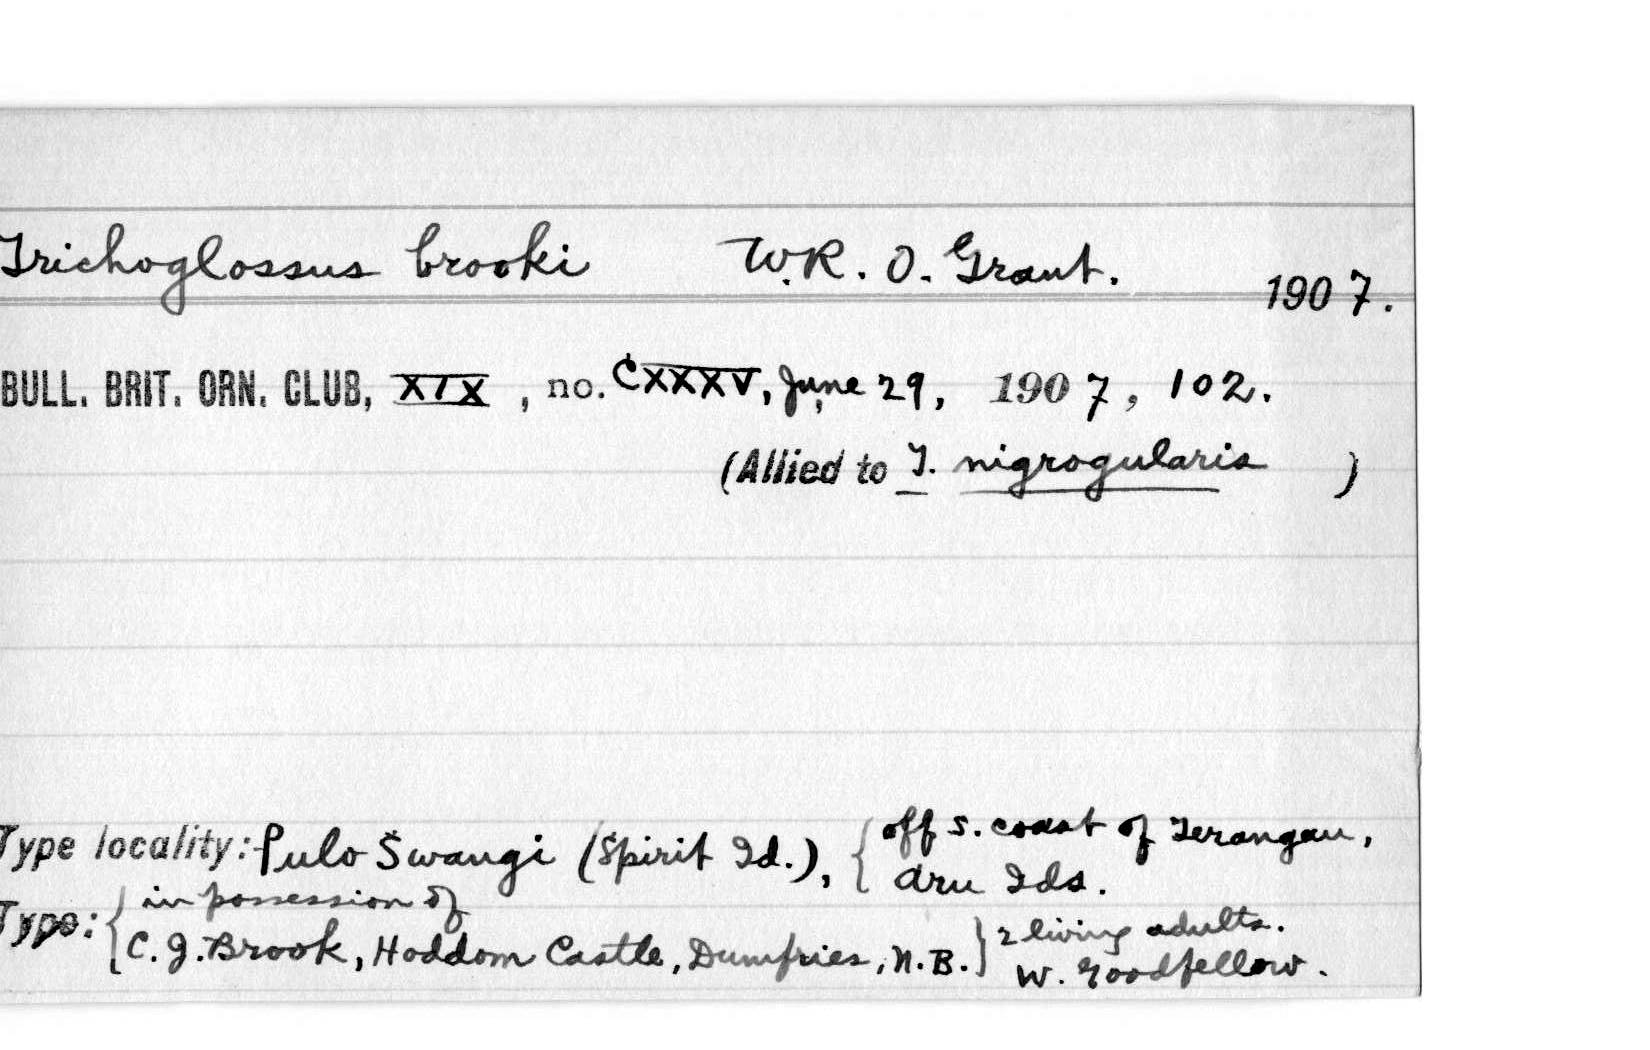 Trichoglossus brooki W.R. O. Grant. 1907.
BULL. BRIT. ORN. CLUB, XIX, no. CXXXV, June 29, 1907, 102.
(Allied to T. nigrogularis )
Type locality: Pulo Swangi (Spirit Id.), { off S. coast of Terangau,
Aru Ids.
Type: { in possession of
C. J. Brook, Hoddom Castle, Dumfries, N.B. } 2 living adults.
W. Goodfellow.